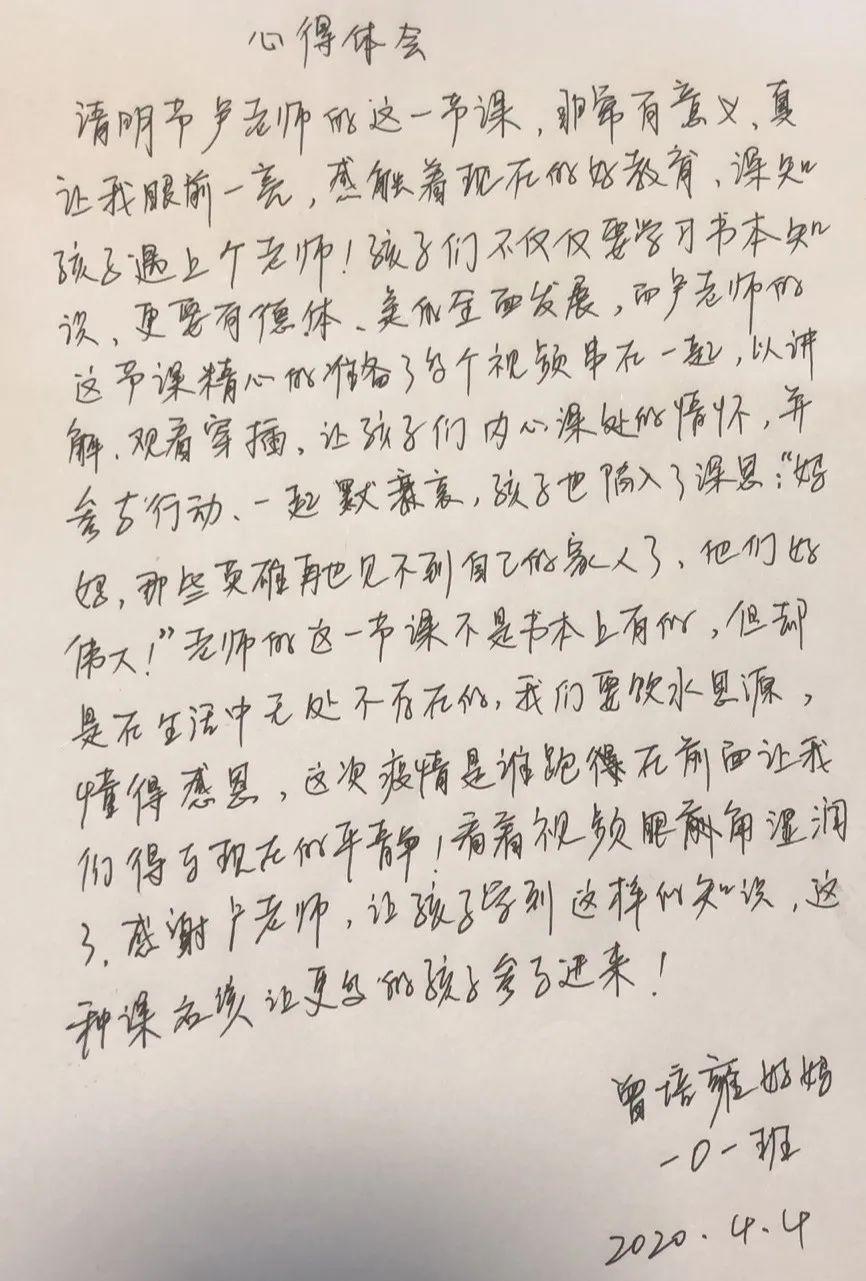 心得体会
清明节卢老师的这一节课，非常有意义，真
让我眼前一亮，感触着现在的好教育、深知
孩子遇上个老师！孩子们不仅仅要学习书本知
识，更要有德体、美的全面发展，而卢老师的
这节课精心的准备了多个视频串在一起，以讲
解、观看穿插，让孩子们内心深处的情怀，并
参与行动、一起默哀，孩子也陷入了深思："妈
妈，那些英雄再也见不到自己的家人了，他们好
伟大！"老师的这一节课不是书本上有的，但却
是在生活中无处不存在的，我们要饮水思源，
懂得感恩，这次疫情是谁跑得在前面让我
们得与现在的平静！看着视频眼角湿润
了，感谢卢老师，让孩子学到这样的知识，这
种课应该让更多的孩子参与进来！
曾培雍妈妈
一0一班
2020.4.4